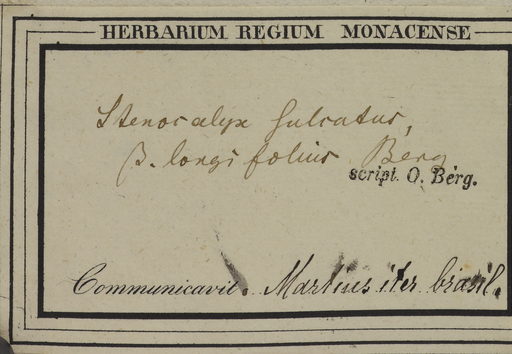 HERBARIUM REGIUM MONACENSE
Stenocalyx sulcatus,
β. longifolius Berg
script. O. Berg.
Communicavit. Martius iter brasil.